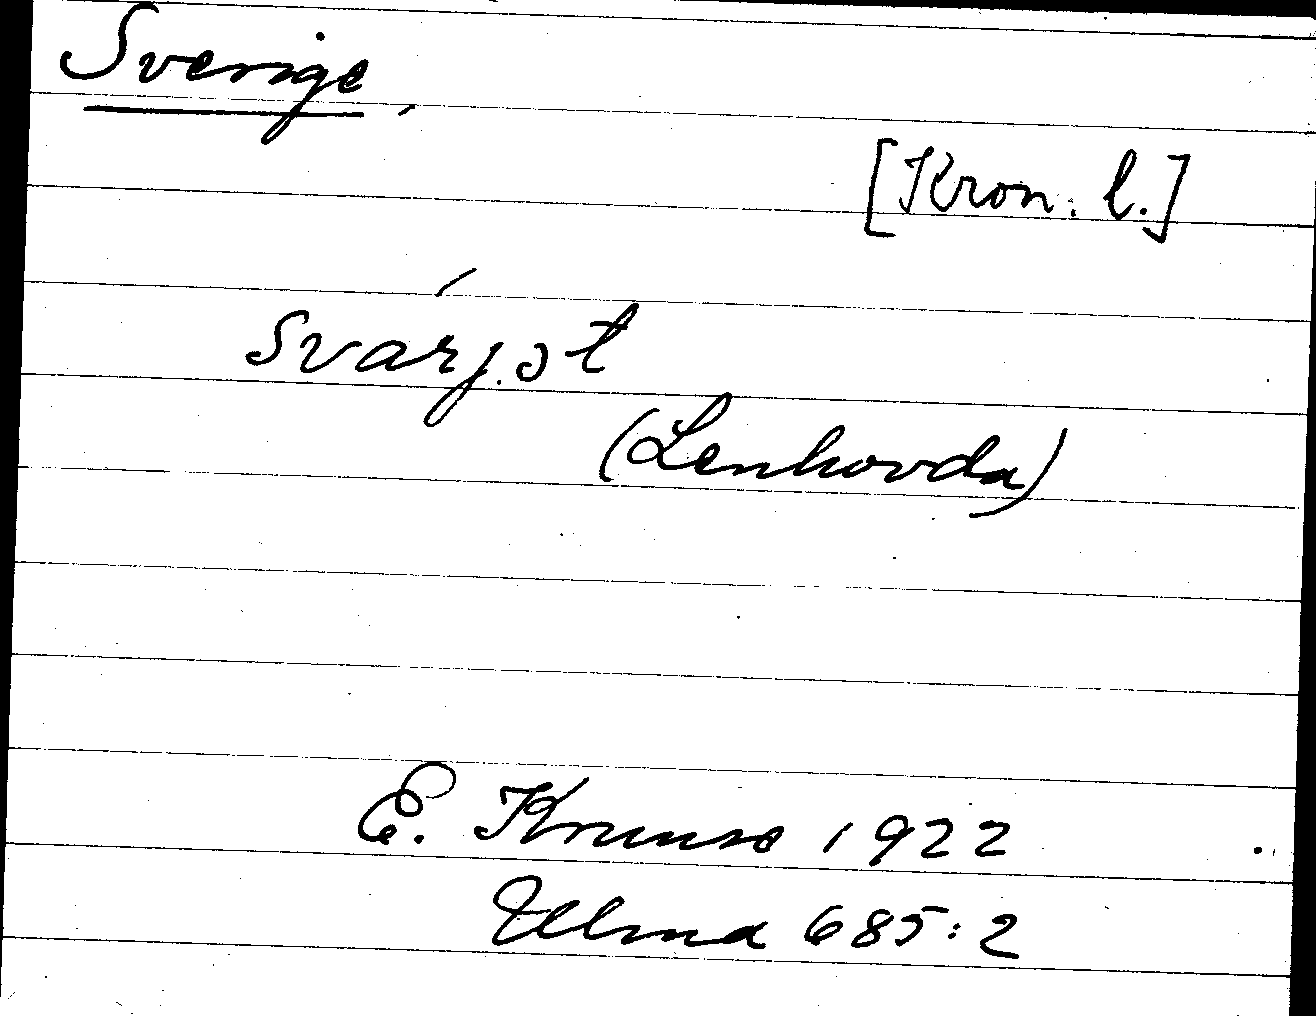 Sverige,
[Kron. l.]
Svárj.ət
(Lenhovda)
E. Kruuse 1922
Ulma 685:2